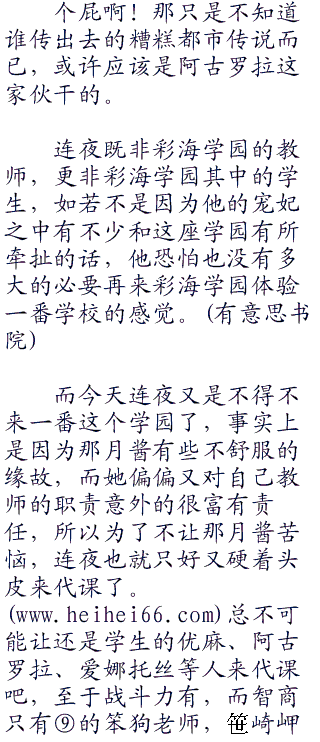 个屁啊！那只是不知道
谁传出去的糟糕都市传说而
已，或许应该是阿古罗拉这
家伙干的。
连夜既非彩海学园的教
师，更非彩海学园其中的学
生，如若不是因为他的宠妃
之中有不少和这座学园有所
牵扯的话，他恐怕也没有多
大的必要再来彩海学园体验
一番学校的感觉。(有意思书
院)
而今天连夜又是不得不
来一番这个学园了，事实上
是因为那月酱有些不舒服的
缘故，而她偏偏又对自己教
师的职责意外的很富有责
任，所以为了不让那月酱苦
恼，连夜也就只好又硬着头
皮来代课了。
(www.heihei66.com)总不可
能让还是学生的优麻、阿古
罗拉、爱娜托丝等人来代课
吧，至于战斗力有，而智商
只有⑨的笨狗老师，笹崎岬